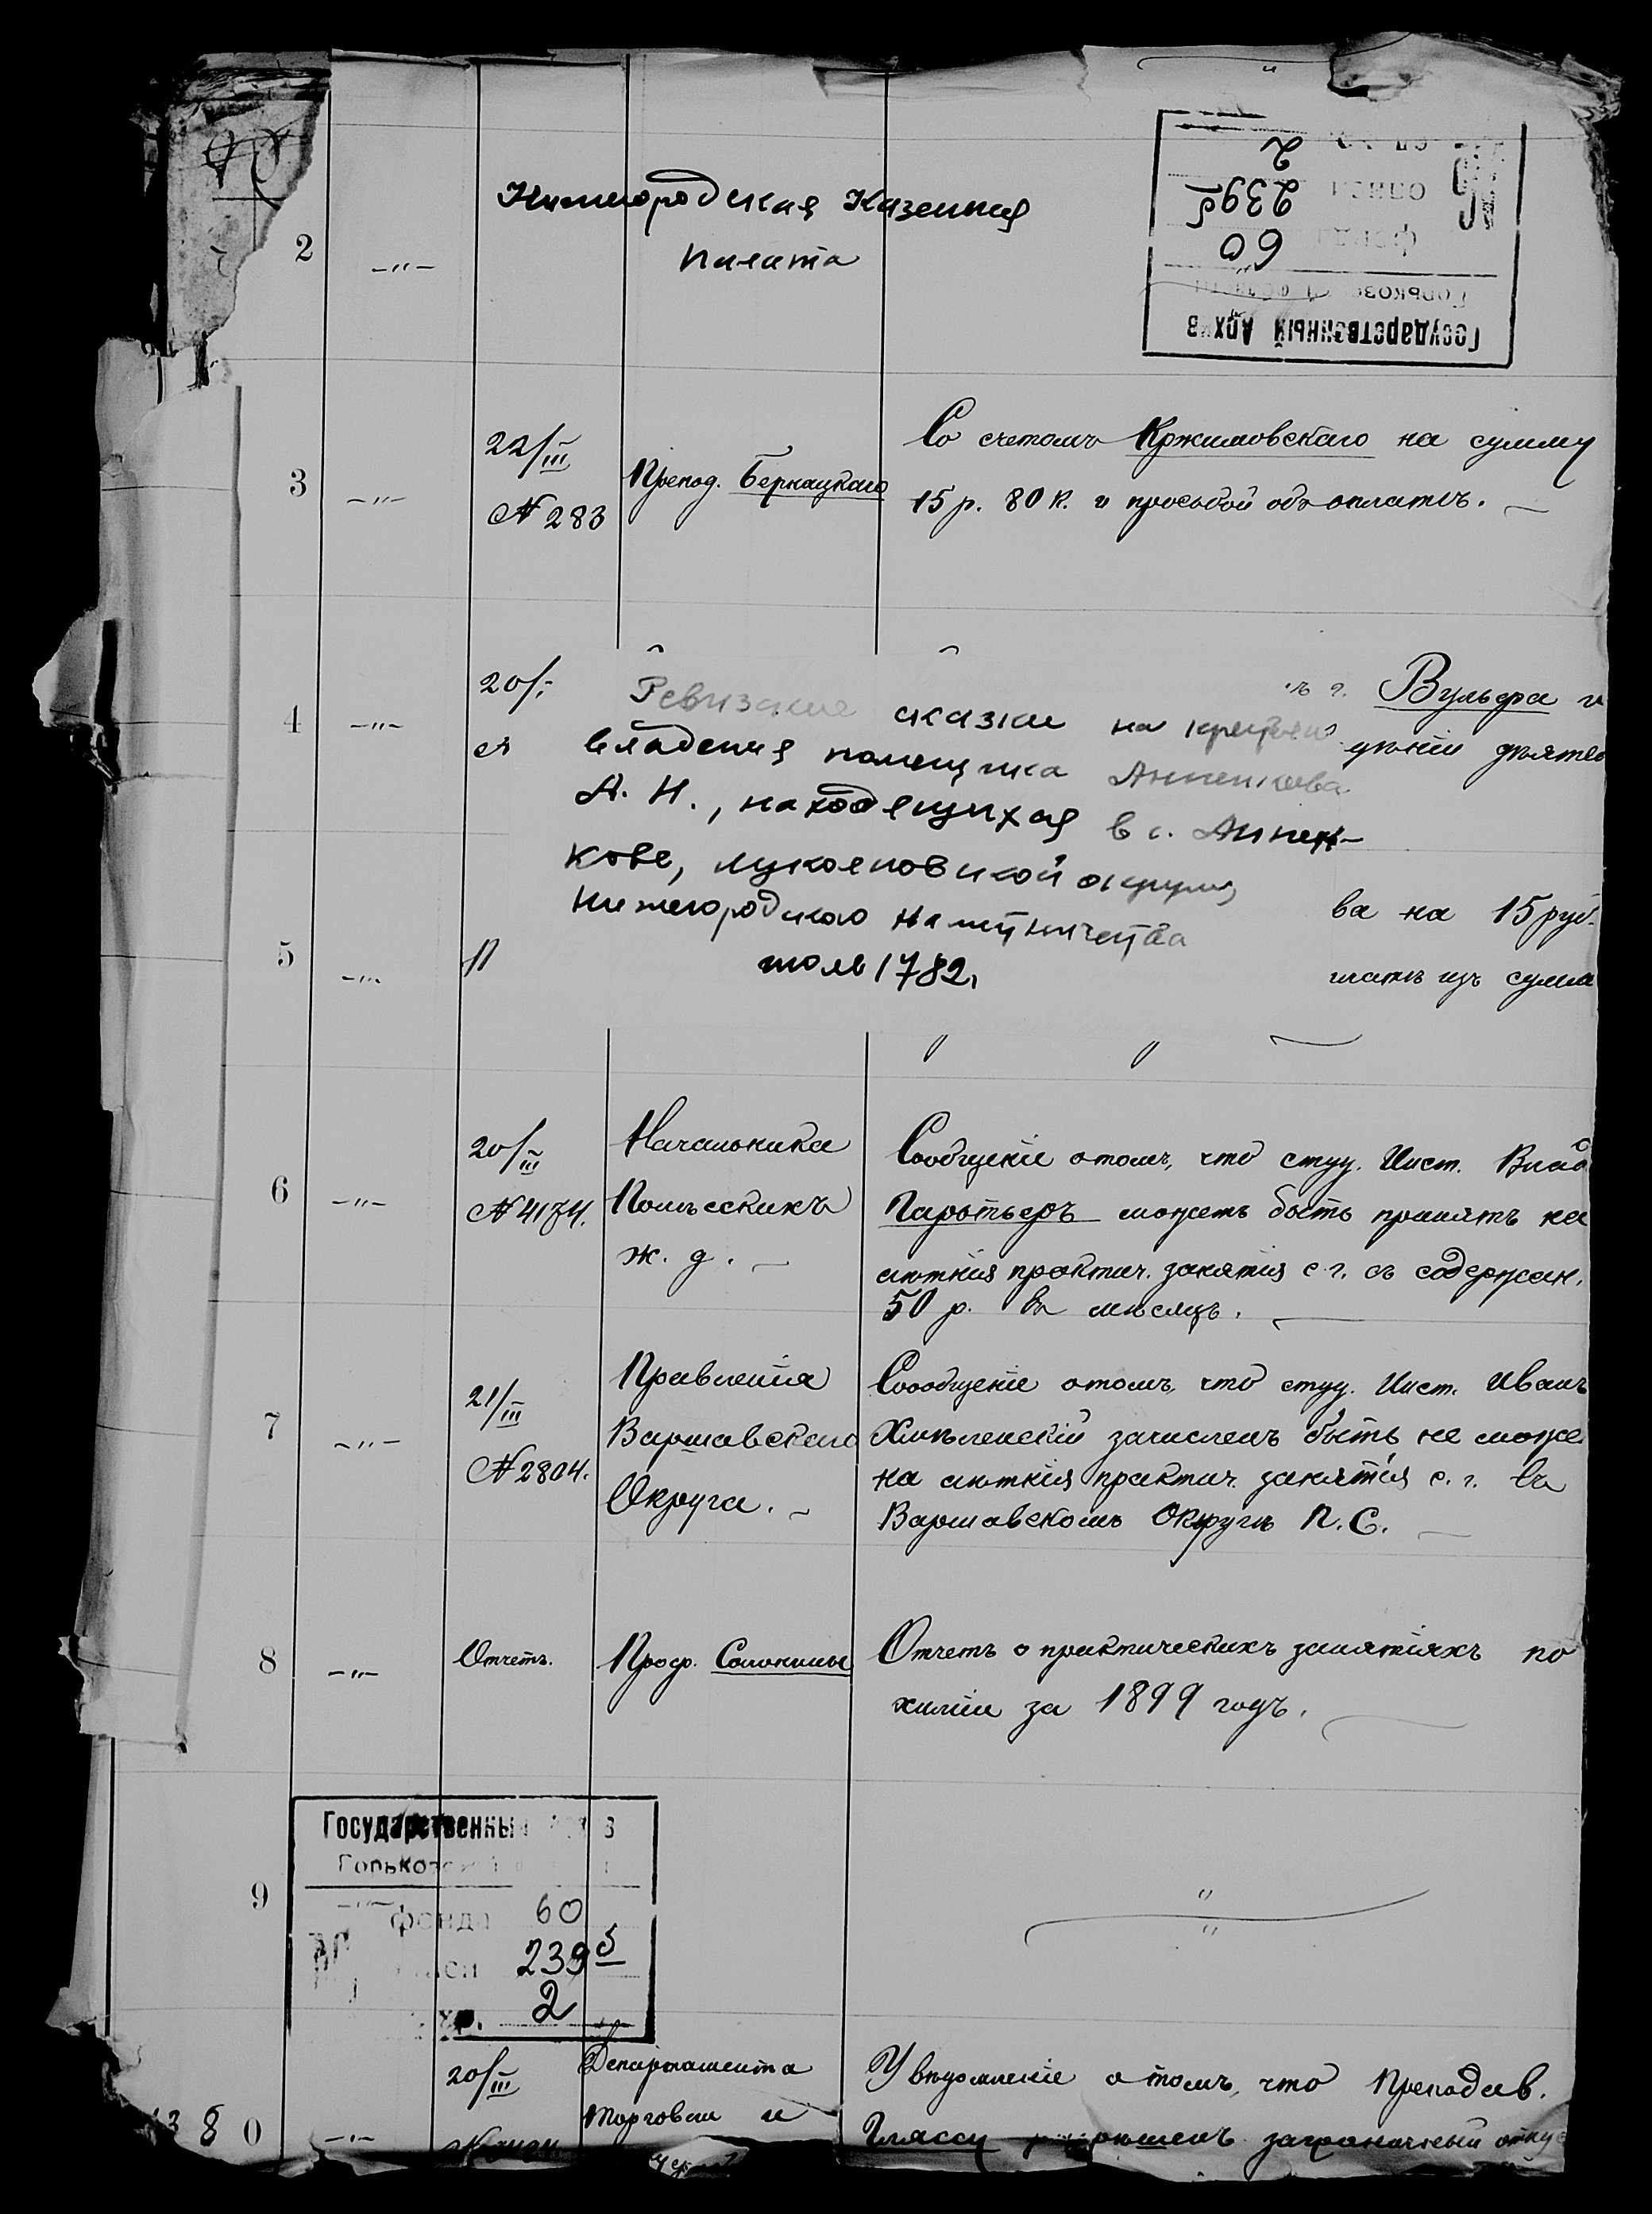 2 -"-
Нижегородская Казенная
Палата
Государственный Архив
Горьковской области
фонд 60
описи 239 5
2
3 -"- 22/III № 283 Препод. Бернацкаго
Со счетомъ Кржимовскаго на сумму
15 р. 80 к. и просьбой объ оплатѣ.
4 -"- 20/
г. Вульфа и
Ревизские сказки на крестьян
владения помещика Анненкова
А. Н., находящихся в с. Аннен-
кове, лукояновской округи
Нижегородского наместничества
июль 1782,
5 -"-
ва на 15 руб.
изъ сумм
6 -"- 20/III № 4174.
Начальника
Полѣсскихъ
ж. д.
Сообщеніе о томъ, что студ. Инст. Влад
Паротьеръ можетъ быть принятъ на
лѣтнія практич. занятія с. г. съ содержан.
50 р. въ мѣсяцъ.
7 -"- 21/III № 2804.
Правленія
Варшавскаго
Округа.
Сообщеніе о томъ, что студ. Инст. Иванъ
Хмѣленскій зачисленъ быть не може
на лѣтнія практич. занятія с. г. въ
Варшавскомъ Округѣ П. С.
8 -"- Отчетъ. Проф. Солонины
Отчетъ о практическихъ занятіяхъ по
химіи за 1899 годъ.
9 -"-
Государственный
Горьковской
фонда 60
239 5
хр. 2
0 -"- 20/III
Департамента
Торговли и
Увѣдомленіе о томъ, что Преподав.
Глассу разрѣшенъ заграничный отпус